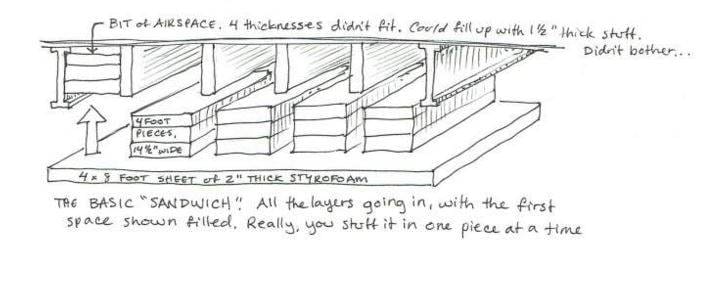 BIT of AIRSPACE. 4 thicknesses didn't fit. Could fill up with 1½" thick stuff.
Didn't bother...
4 FOOT
PIECES,
14½" WIDE
4 x 8 FOOT SHEET of 2" THICK STYROFOAM
THE BASIC "SANDWICH". All the layers going in, with the first
space shown filled. Really, you stuff it in one piece at a time